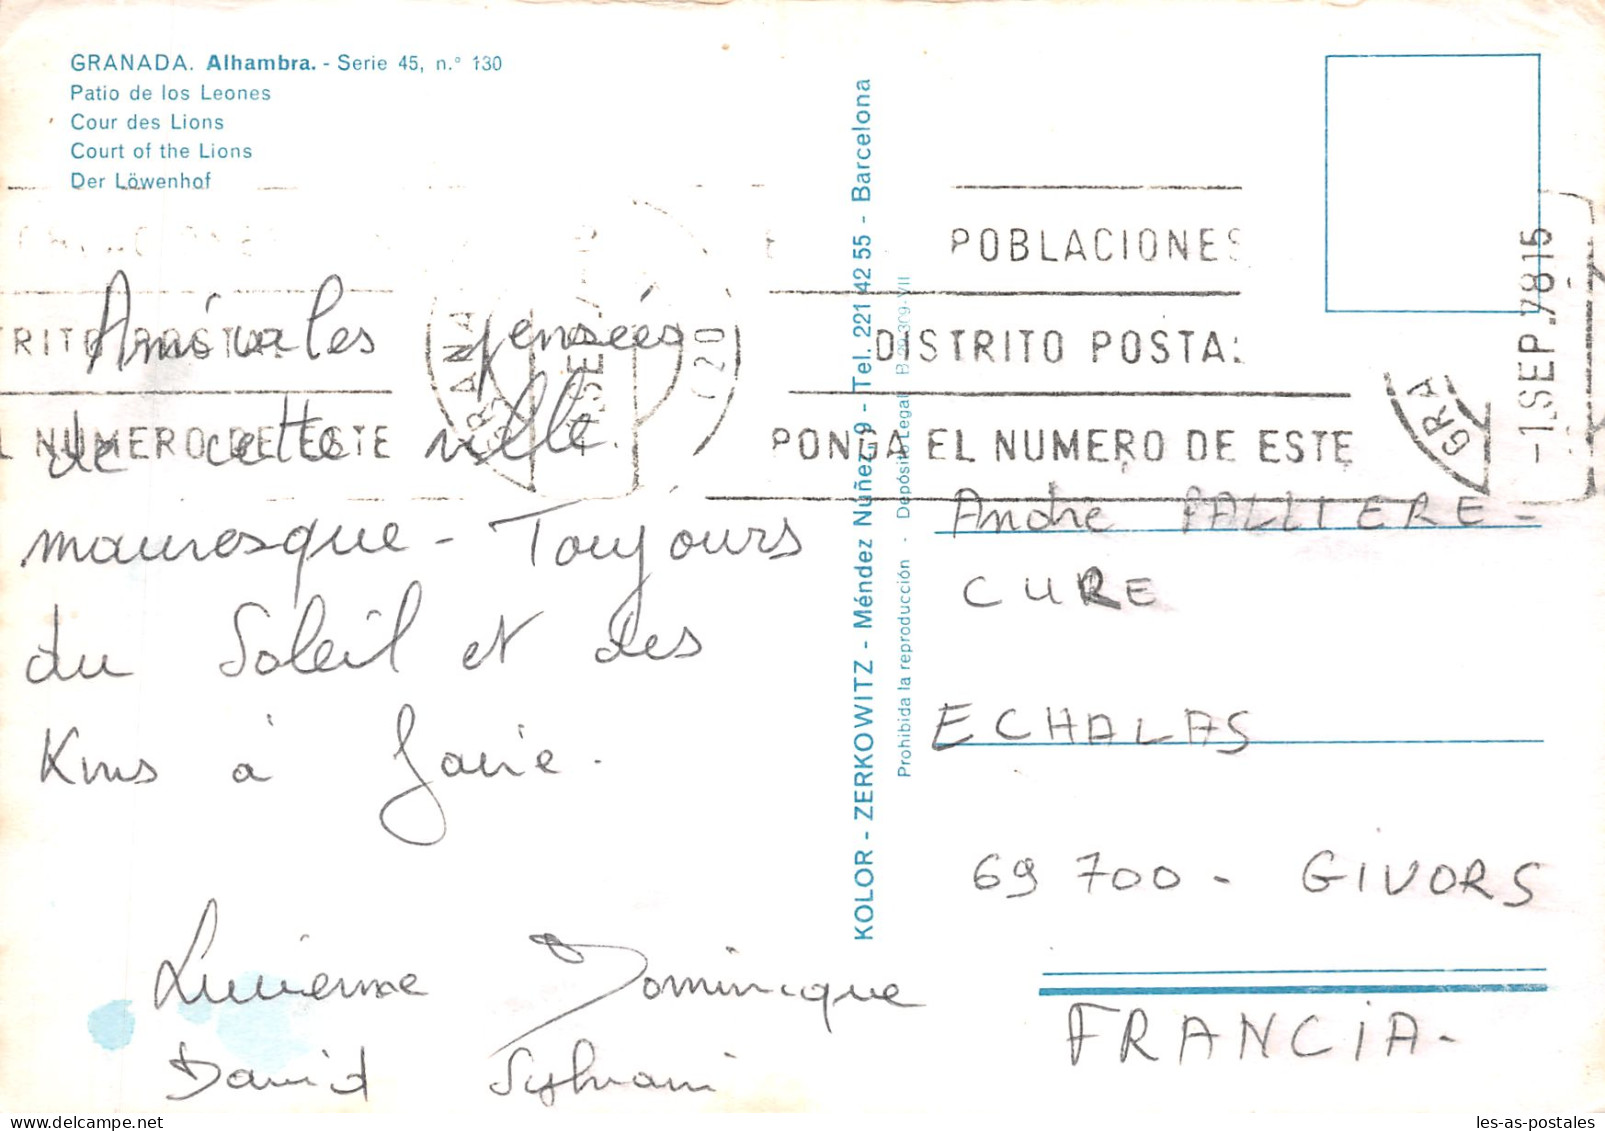 GRANADA. Alhambra. - Serie 45, n.° 130
Patio de los Leones
Cour des Lions
Court of the Lions
Der Löwenhof
Amicales pensées
de cette ville
mauresque - Toujours
du Soleil et des
Kms à faire.
Lucienne Dominique
David Sylvain
KOLOR - ZERKOWITZ - Méndez Núñez, 9 - Tel. 221 42 55 - Barcelona
Prohibida la reproducción - Depósito Legal B. 29.309-VII
POBLACIONES
DISTRITO POSTAL
PONGA EL NUMERO DE ESTE
RITO POSTAL
L NUMERO DE ESTE
GRANA
(20)
GRA
-1.SEP.7815
André PALLIERE -
CURE
ECHALAS
69 700 - GIVORS
FRANCIA -
les-as-postales